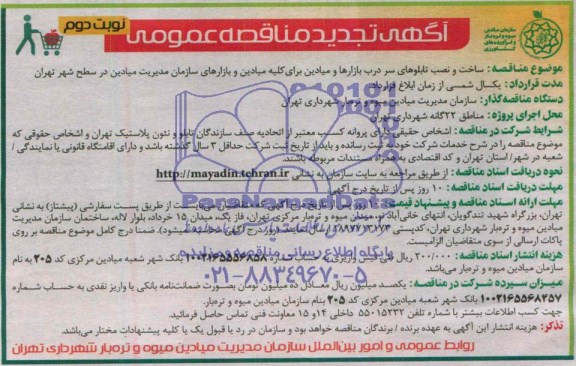 نوبت دوم
آگهی تجدید مناقصه عمومی
سازمان میادین
میوه و تره بار
و فرآورده های
کشاورزی
موضوع مناقصه: ساخت و نصب تابلوهای سر درب بازارها و میادین برای کلیه میادین و بازارهای سازمان مدیریت میادین در سطح شهر تهران
مدت قرارداد: یکسال شمسی از زمان ابلاغ قرارداد
دستگاه مناقصه گذار: سازمان مدیریت میادین میوه و تره بار شهرداری تهران
محل اجرای پروژه: مناطق ۲۲گانه شهرداری تهران
شرایط شرکت در مناقصه: اشخاص حقیقی دارای پروانه کسب معتبر از اتحادیه صنف سازندگان تابلو و نئون پلاستیک تهران و اشخاص حقوقی که
موضوع مناقصه را در شرح خدمات شرکت خود به ثبت رسانده و باید از تاریخ ثبت شرکت حداقل ۳ سال گذشته باشد و دارای اقامتگاه قانونی یا نمایندگی /
شعبه در شهر/ استان تهران و کد اقتصادی به همراه مستندات مربوطه باشند.
نحوه دریافت اسناد مناقصه: از طریق مراجعه به سایت سازمان به نشانی http://mayadin.tehran.ir
مهلت دریافت اسناد مناقصه: ۱۰ روز پس از تاریخ درج آگهی
مهلت ارائه اسناد مناقصه و پیشنهاد قیمت: روز پس از تاریخ از طریق پست سفارشی (پیشتاز) به نشانی
تهران، بزرگراه شهید تندگویان، انتهای خانی آباد نو، میدان میوه و تره بار مرکزی تهران، فاز یک، میدان ۱۵ خرداد، بلوار لاله، ساختمان سازمان مدیریت
میادین میوه و تره بار شهرداری تهران، کدپستی ضمنا درج کامل موضوع مناقصه بر روی
پاکات ارسالی از سوی متقاضیان الزامیست.
هزینه انتشار اسناد مناقصه: ۲۰۰/۰۰۰ ریال طی فیش واریزی به حساب شماره ۱۰۰۲۱۶۵۵۵۶۸۵۸ بانک شهر شعبه میادین مرکزی کد ۲۰۵ به نام
سازمان میادین میوه و تره بار می باشد.
میزان سپرده شرکت در مناقصه: یکصد میلیون ریال معادل ده میلیون تومان بصورت ضمانت نامه بانکی یا واریز نقدی به حساب شماره
۱۰۰۲۱۶۵۵۶۸۳۵۷ بانک شهر شعبه میادین مرکزی کد ۲۰۵ بنام سازمان میادین میوه و تره بار.
جهت کسب اطلاعات بیشتر با شماره تلفن ۵۵۰۱۵۲۳۲ داخلی ۱۴ و ۱۵ معاونت فنی تماس حاصل فرمائید.
تذکر: هزینه انتشار این آگهی به عهده برنده / برندگان مناقصه خواهد بود و سازمان در رد یا قبول یک یا کلیه پیشنهادات مختار می باشد.
روابط عمومی و امور بین الملل سازمان مدیریت میادین میوه و تره بار شهرداری تهران
ParsNamadData
پایگاه اطلاع رسانی مناقصه و مزایده
۰۲۱-۸۸۳۴۹۶۷۰-۵